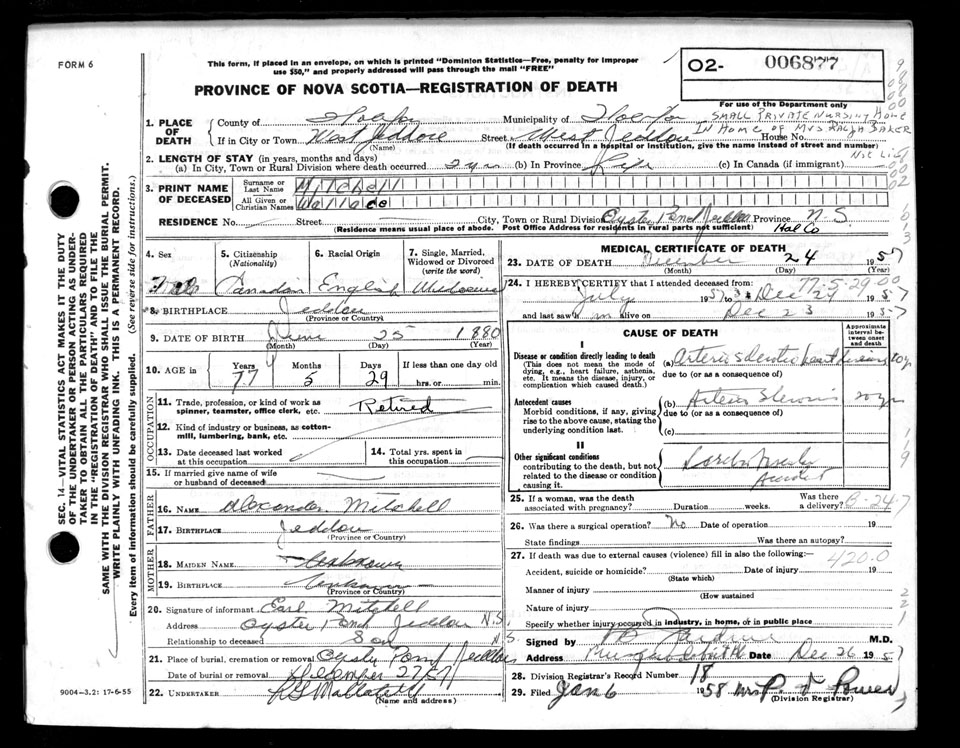 FORM 6
This form, if placed in an envelope, on which is printed "Dominion Statistics—Free, penalty for improper
use $50," and properly addressed will pass through the mail "FREE"
O2- 006877
PROVINCE OF NOVA SCOTIA—REGISTRATION OF DEATH
For use of the Department only
SMALL PRIVATE NURSING HOME
IN HOME OF MRS RALPH BAKER
1. PLACE OF DEATH
County of Halifax Municipality of Halifax
If in City or Town West Jeddore Street West Jeddore House No.
(Name) (If death occurred in a hospital or institution, give the name instead of street and number)
Not List
2. LENGTH OF STAY (in years, months and days)
(a) In City, Town or Rural Division where death occurred 2 yrs (b) In Province Life (c) In Canada (if immigrant)
3. PRINT NAME OF DECEASED
Surname or Last Name Mitchell
All Given or Christian Names Wallace
RESIDENCE No. Street City, Town or Rural Division Oyster Pond Jeddore Province N.S
(Residence means usual place of abode. Post Office Address for residents in rural parts not sufficient) Hal Co
4. Sex
5. Citizenship (Nationality)
6. Racial Origin
7. Single, Married, Widowed or Divorced (write the word)
Male Canadian English Widower
8. BIRTHPLACE Jeddore
(Province or Country)
9. DATE OF BIRTH June 25 1880
(Month) (Day) (Year)
10. AGE in Years Months Days If less than one day old
77 5 29 hrs. or min.
OCCUPATION
11. Trade, profession, or kind of work as
spinner, teamster, office clerk, etc. Retired
12. Kind of industry or business, as cotton-
mill, lumbering, bank, etc.
13. Date deceased last worked at this occupation
14. Total yrs. spent in this occupation
15. If married give name of wife
or husband of deceased
FATHER
16. NAME Alexander Mitchell
17. BIRTHPLACE Jeddore
(Province or Country)
MOTHER
18. MAIDEN NAME Unknown
19. BIRTHPLACE Unknown
(Province or Country)
20. Signature of informant Earl Mitchell
Address Oyster Pond Jeddore N.S.
Relationship to deceased Son N.S.
21. Place of burial, cremation or removal Oyster Pond Jeddore
Date of burial or removal December 27/57
22. UNDERTAKER
(Name and address)
9004—3.2: 17-6-55
MEDICAL CERTIFICATE OF DEATH
23. DATE OF DEATH December 24 1957
(Month) (Day) (Year)
77-5-29-00
24. I HEREBY CERTIFY that I attended deceased from:
July 1957 to Dec 24 1957
and last saw him alive on Dec 23 1957
CAUSE OF DEATH
Approximate interval between onset and death
I
Disease or condition directly leading to death
(This does not mean the mode of dying, e.g., heart failure, asthenia, etc. It means the disease, injury, or complication which caused death.)
(a) Arteriosclerotic heart disease 10 yr
due to (or as a consequence of)
Antecedent causes
Morbid conditions, if any, giving rise to the above cause, stating the underlying condition last.
(b) Arterio Sclerosis 20 yrs
due to (or as a consequence of)
(c)
II
Other significant conditions
contributing to the death, but not related to the disease or condition causing it.
25. If a woman, was the death associated with pregnancy? Duration weeks. Was there a delivery?
B-24-7
26. Was there a surgical operation? No Date of operation 19
State findings Was there an autopsy?
27. If death was due to external causes (violence) fill in also the following:—
420.0
Accident, suicide or homicide? Date of injury 19
(State which)
Manner of injury
(How sustained
Nature of injury
Specify whether injury occurred in industry, in home, or in public place
Signed by M.D.
Address Musquodoboit Date Dec 26 1957
28. Division Registrar's Record Number 18
29. Filed Jan 6 1958 Mrs P. V Power
(Division Registrar)
SEC. 14—VITAL STATISTICS ACT MAKES IT THE DUTY
OF THE UNDERTAKER OR PERSON ACTING AS UNDER-
TAKER TO OBTAIN ALL THE PARTICULARS REQUIRED
IN THE "REGISTRATION OF DEATH" AND TO FILE THE
SAME WITH THE DIVISION REGISTRAR WHO SHALL ISSUE THE BURIAL PERMIT.
WRITE PLAINLY WITH UNFADING INK. THIS IS A PERMANENT RECORD.
Every item of information should be carefully supplied. (See reverse side for instructions.)